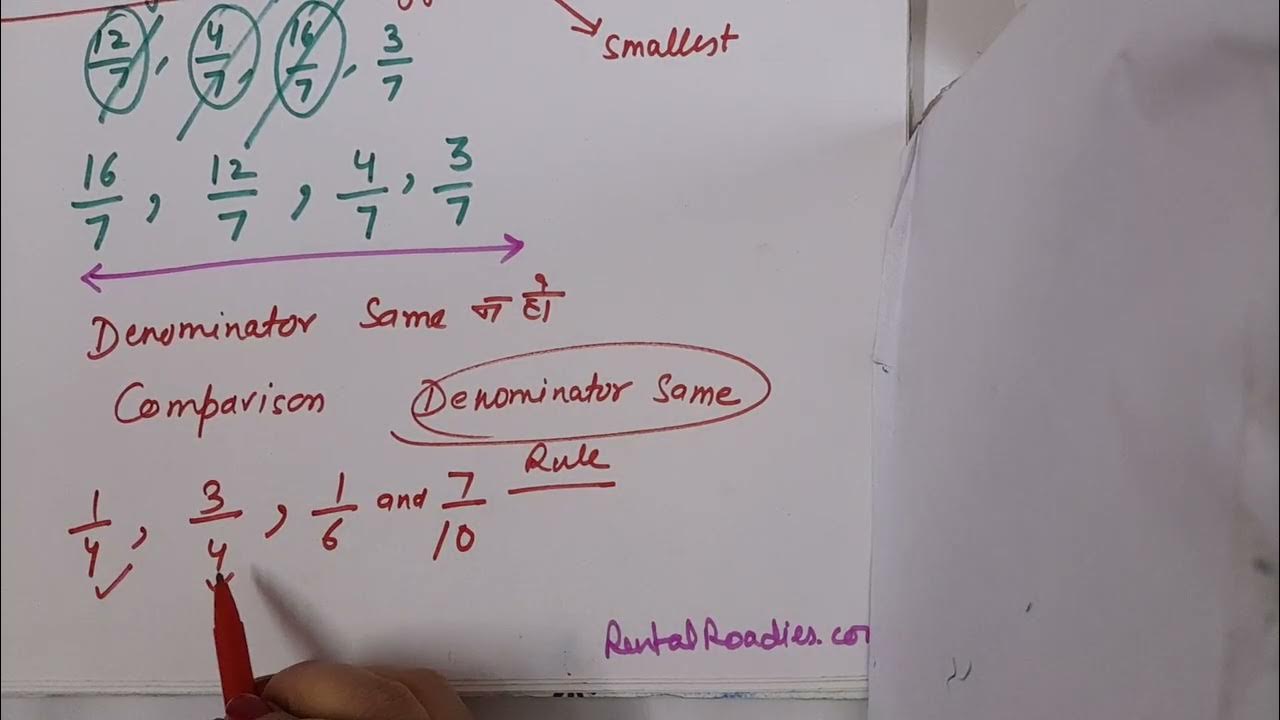 smallest
12/7, 4/7, 16/7, 3/7
16/7, 12/7, 4/7, 3/7
Denominator Same न हो
Comparison Denominator Same
Rule
1/4, 3/4, 1/6 and 7/10
RentalRoadies.com